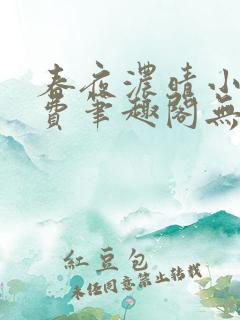 春夜濃晴小
費筆趣閣無
紅豆包
未经同意禁止转载